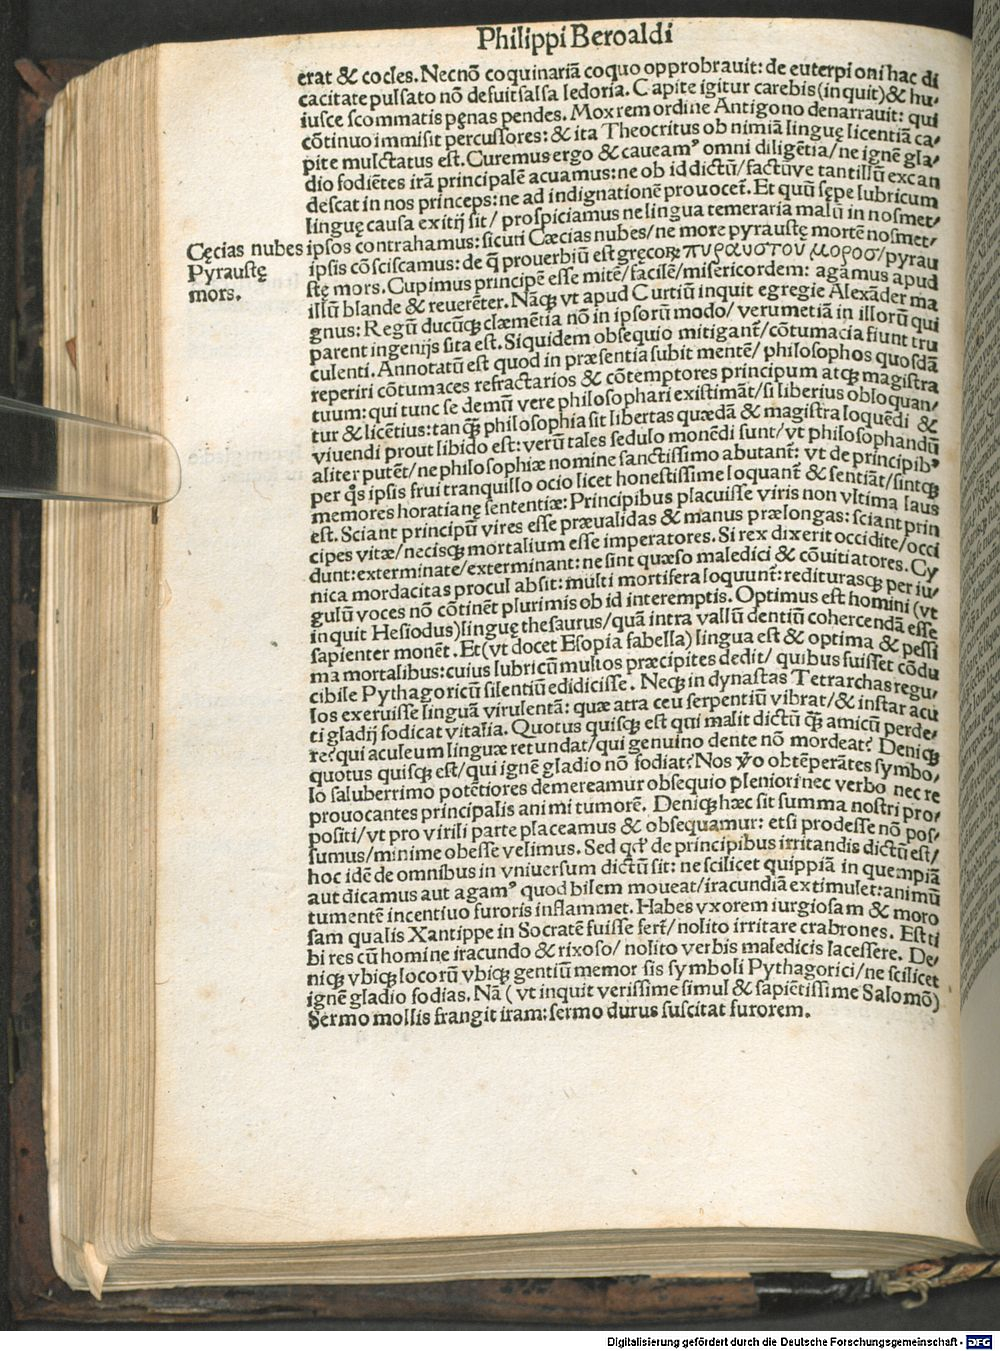 Philippi Beroaldi
erat & cocles. Necnō coquinariā coquo opprobrauit: de euterpioni hac di
cacitate pulsato nō defuit salsa ledoria. Capite igitur carebis (inquit) & hu/
iusce scommatis pęnas pendes. Mox rem ordine Antigono denarrauit: qui
cōtinuo immisit percussores: & ita Theocritus ob nimiā linguę licentiā ca/
pite mulctatus est. Curemus ergo & caueamꝰ omni diligētia/ne ignē gla/
dio fodiētes irā principalē acuamus: ne ob id dictū/factūve tantillū excan
descat in nos princeps: ne ad indignationē prouocet̄. Et quū sępe lubricum
linguę causa exitij sit/ prospiciamus ne lingua temeraria malū in nosmet/
Cęcias nubes
ipsos contrahamus: sicuti Cæcias nubes/ne more pyraustę mortē nosmet/
Pyraustę
ipsis cōsciscamus: de q̄ prouerbiū est gręcoꝝ πυραυστου μοροσ/pyrau
mors.
stę mors. Cupimus principē esse mitē/facilē/misericordem: agamus apud
illū blande & reuerēter. Nāqꝫ vt apud Curtiū inquit egregie Alexāder ma
gnus: Regū ducūqꝫ clæmētia nō in ipsorū modo/ verumetiā in illorū qui
parent ingenijs sita est. Siquidem obsequio mitigant̄/cōtumacia fiunt tru
culenti. Annotatū est quod in præsentia subit mentē/ philosophos quosdā
reperiri cōtumaces refractarios & cōtemptores principum atqꝫ magistra
tuum: qui tunc se demū vere philosophari existimāt/si liberius obloquan/
tur & licētius: tanqꝫ̄ philosophia sit libertas quædā & magistra loquēdi &
viuendi prout libido est: verū tales sedulo monēdi sunt/vt philosophandū
aliter putēt/ne philosophiæ nomine sanctissimo abutant̄: vt de principibꝰ
per q̄s ipsis frui tranquillo ocio licet honestissime loquant̄ & sentiāt/sintqꝫ
memores horatianę sententiæ: Principibus placuisse viris non vltima laus
est. Sciant principū vires esse præualidas & manus prælongas: sciant prin
cipes vitæ/necisqꝫ mortalium esse imperatores. Si rex dixerit occidite/occi
dunt: exterminate/exterminant: ne sint quæso maledici & cōuitiatores. Cy
nica mordacitas procul absit: multi mortifera loquunt̄: redituraśqꝫ per iu/
gulū voces nō cōtinēt plurimis ob id interemptis. Optimus est homini (vt
inquit Hesiodus) linguę thesaurus/quā intra vallū dentiū cohercendā esse
sapienter monēt. Et (vt docet Esopia fabella) lingua est & optima & pessi
ma mortalibus: cuius lubricū multos præcipites dedit/ quibus fuisset cōdu
cibile Pythagoricū silentiū edidicisse. Neqꝫ in dynastas Tetrarchas regu/
los exeruisse linguā virulentā: quæ atra ceu serpentiū vibrat/& instar acu
ti gladij fodicat vitalia. Quotus quisqꝫ est qui malit dictū qꝫ̄ amicū perde/
re? qui aculeum linguæ retundat/qui genuino dente nō mordeat? Deniqꝫ
quotus quisqꝫ est/qui ignē gladio nō fodiat? Nos ꝟo obtēperātes symbo/
lo saluberrimo potētiores demereamur obsequio pleniori nec verbo nec re
prouocantes principalis animi tumorē. Deniqꝫ hæc sit summa nostri pro/
positi/vt pro virili parte placeamus & obsequamur: etsi prodesse nō pos/
sumus/minime obesse velimus. Sed qđ de principibus irritandis dictū est/
hoc idē de omnibus in vniuersum dictū sit: ne scilicet quippiā in quempiā
aut dicamus aut agamꝰ quod bilem moueat/iracundiā extimulet: animū
tumentē incentiuo furoris inflammet. Habes vxorem iurgiosam & moro
sam qualis Xantippe in Socratē fuisse fert̄/nolito irritare crabrones. Est ti
bi res cū homine iracundo & rixoso/ nolito verbis maledicis lacessere. De/
niqꝫ vbiqꝫ locorū vbiqꝫ gentiū memor sis symboli Pythagorici/ne scilicet
ignē gladio fodias. Nā (vt inquit verissime simul & sapiētissime Salomō)
Sermo mollis frangit iram: sermo durus suscitat furorem.
Digitalisierung gefördert durch die Deutsche Forschungsgemeinschaft - DFG